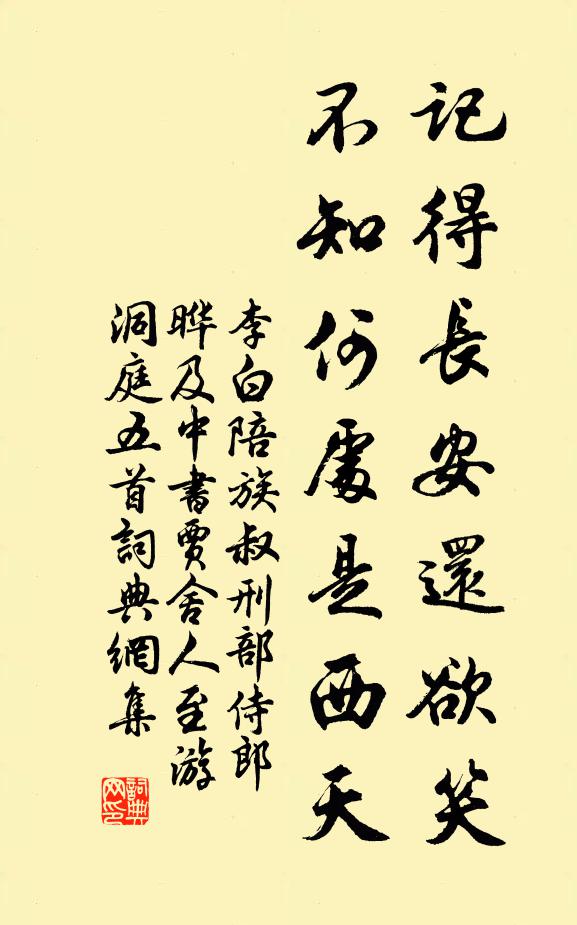 記得長安還欲笑
不知何處是西天
李白陪族叔刑部侍郎
晔及中書賈舍人至游
洞庭五首詞典網集
詞典
网印